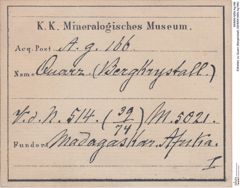 K. K. Mineralogisches Museum.
Acq. Post A. g. 166
Name Quarz. (Bergkrystall.)
V. d. N. 514. (39/74) M. 5021.
Fundort Madagaskar. Afrika.
I